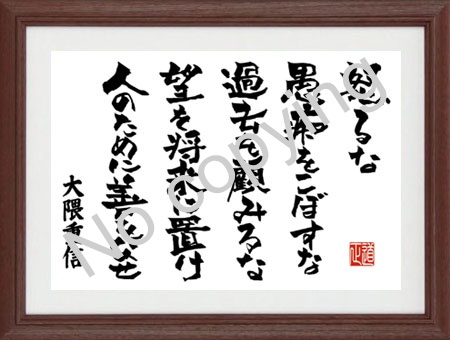 怒るな
愚痴をこぼすな
過去を顧みるな
望を将来に置け
人のために善をなせ
大隈重信
正道
No copying